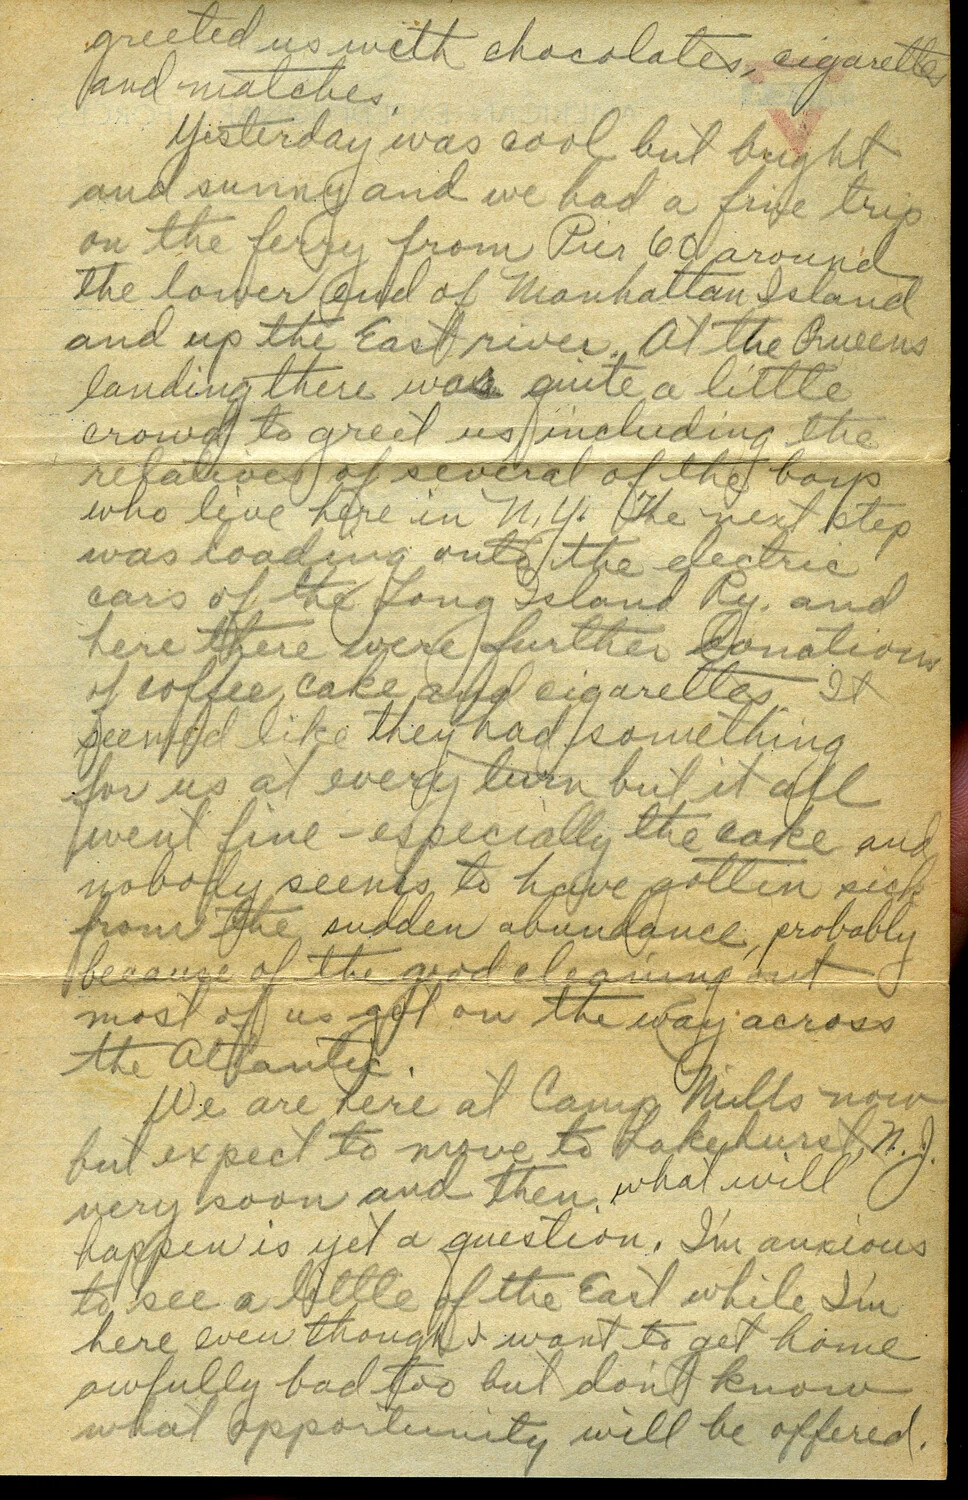 greeted us with chocolates, cigarettes
and matches.
Yesterday was cool but bright
and sunny and we had a fine trip
on the ferry from Pier 60 around
the lower end of Manhattan Island
and up the East river. At the Queens
landing there was quite a little
crowd to greet us including the
relatives of several of the boys
who live here in N.Y. The next step
was loading onto the electric
cars of the Long Island Ry. and
here there were further donations
of coffee, cake and cigarettes. It
seemed like they had something
for us at every turn but it all
went fine - especially the cake and
nobody seems to have gotten sick
from the sudden abundance, probably
because of the good cleaning out
most of us got on the way across
the Atlantic.
We are here at Camp Mills now
but expect to move to Lakehurst, N.J.
very soon and then what will
happen is yet a question. I'm anxious
to see a little of the East while I'm
here even though I want to get home
awfully bad too but don't know
what opportunity will be offered.